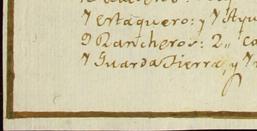 7 estaquero: y 7 Ayu
9 Rancheros: 2,, Ca
7 Guarda Tierra, y 7